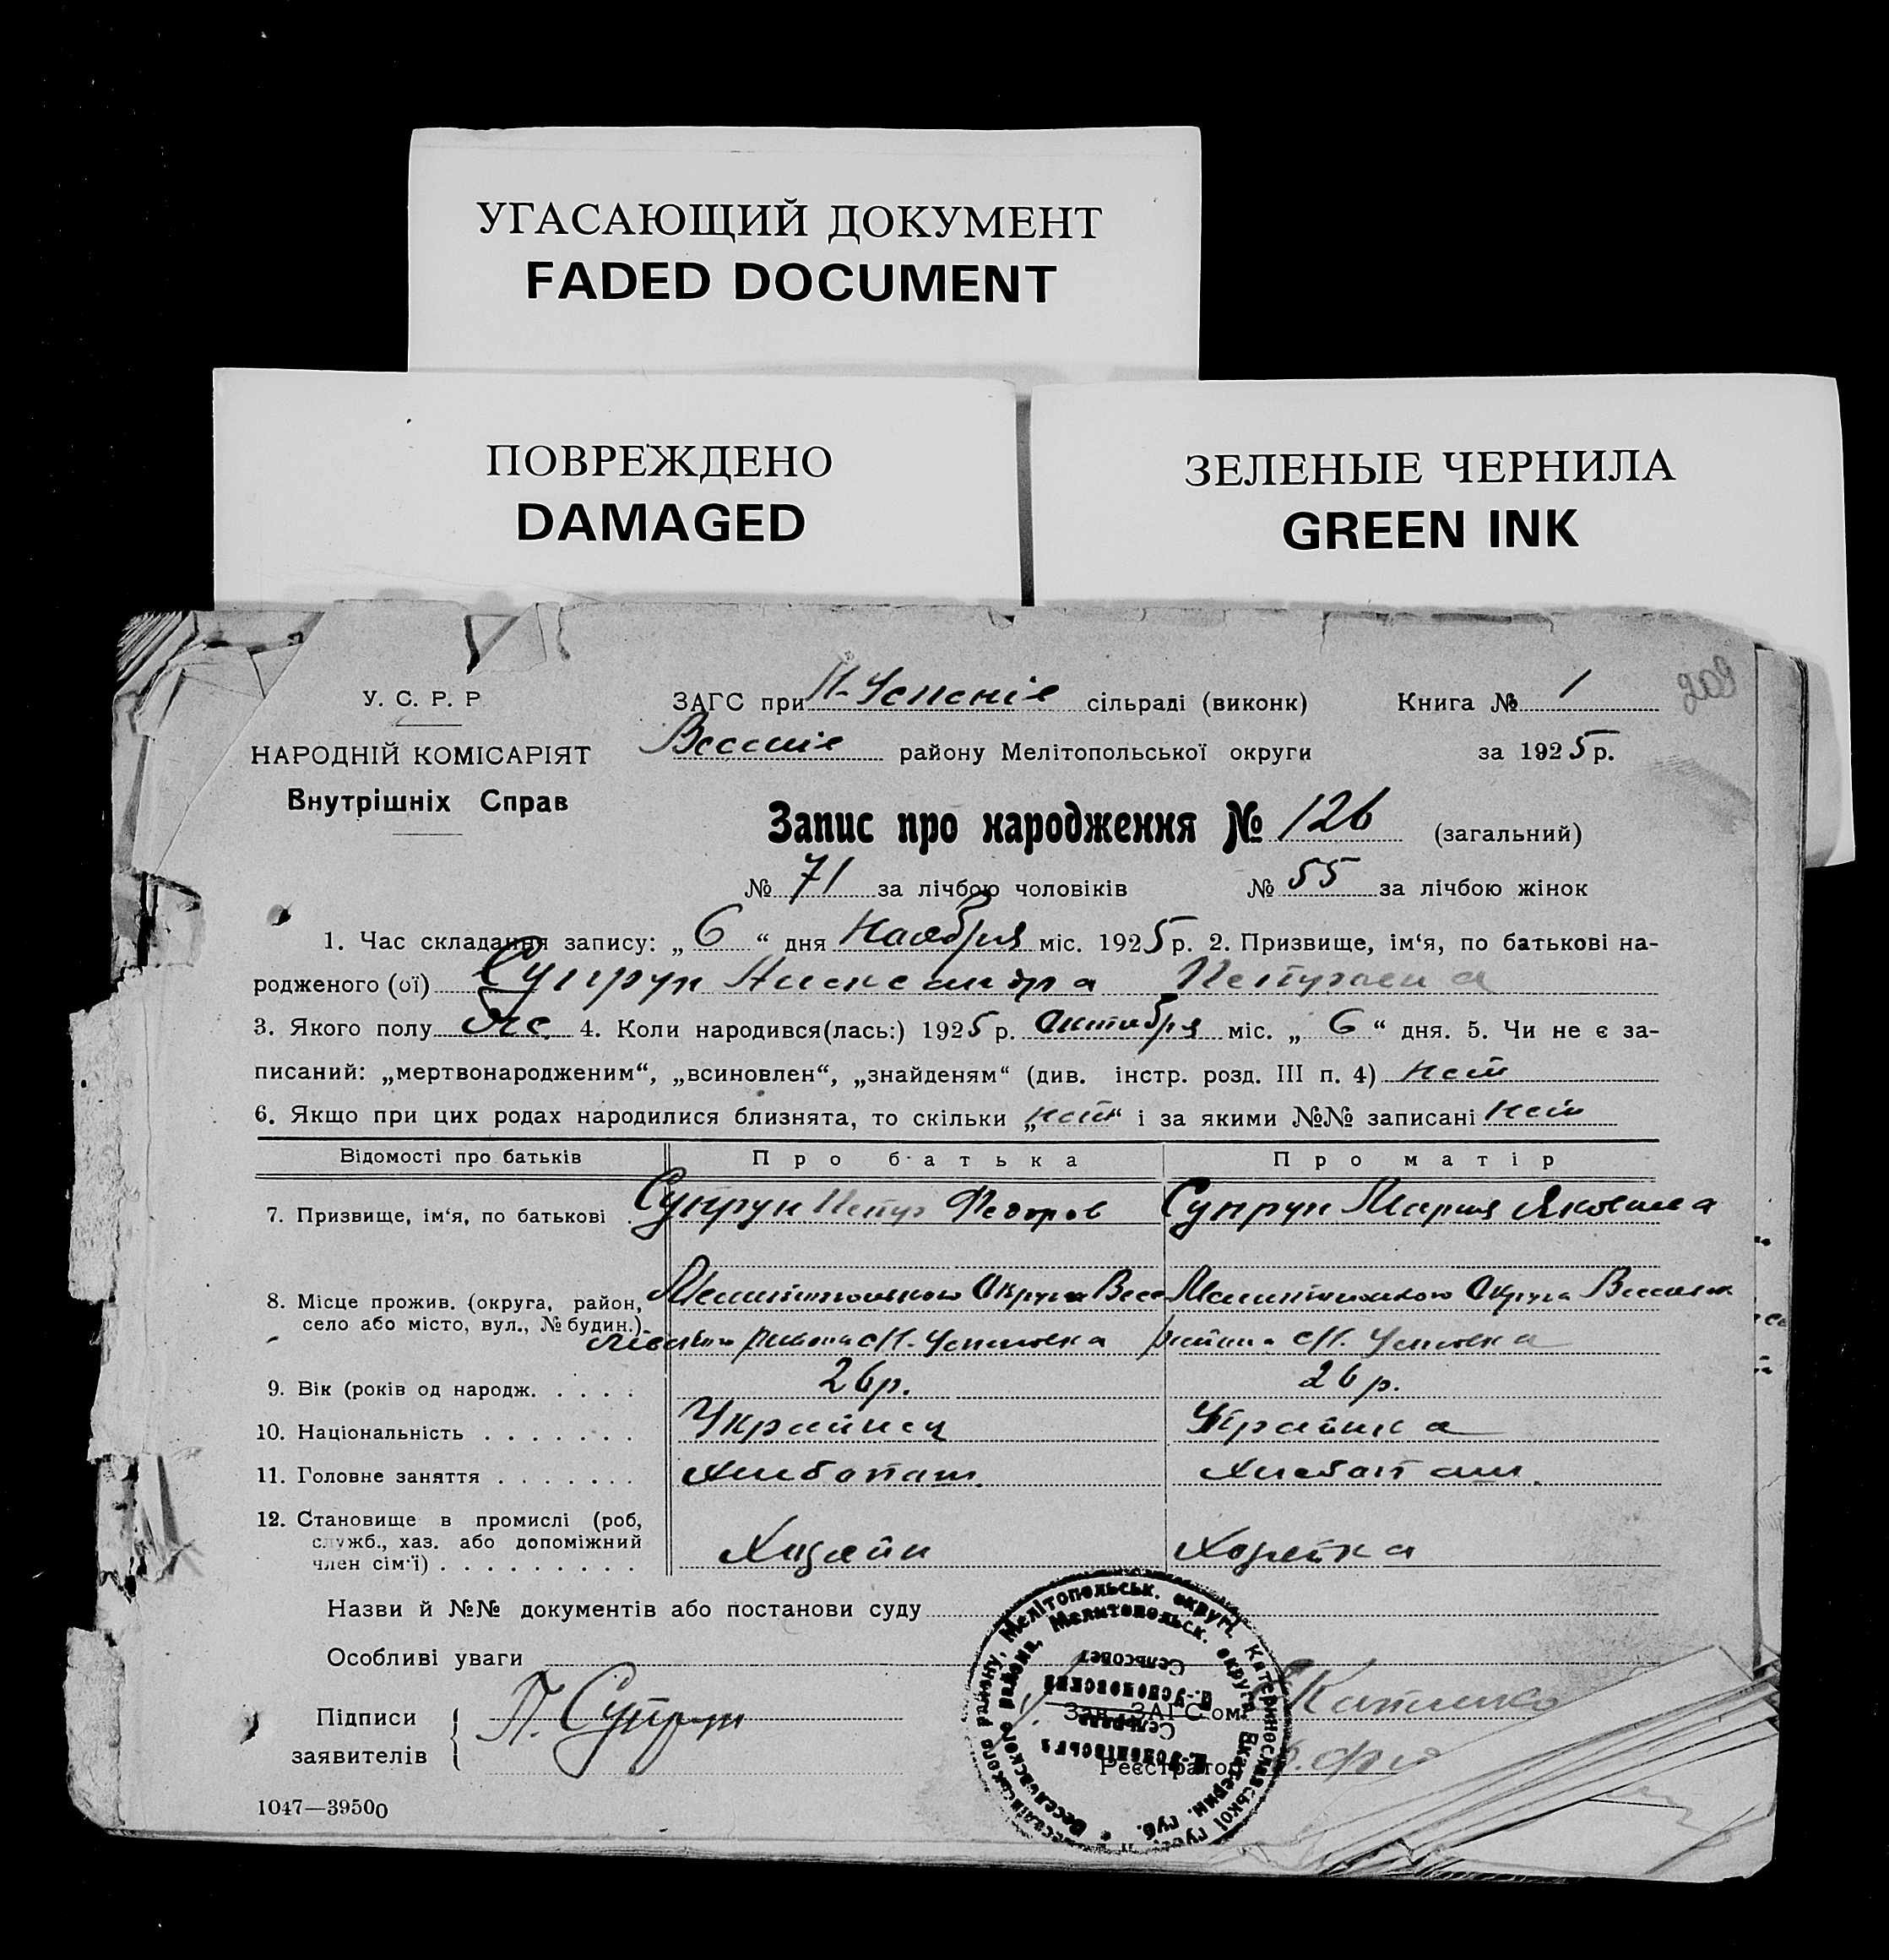 УГАСАЮЩИЙ ДОКУМЕНТ
FADED DOCUMENT
ПОВРЕЖДЕНО
DAMAGED
ЗЕЛЕНЫЕ ЧЕРНИЛА
GREEN INK
209
У. С. Р. Р
НАРОДНІЙ КОМІСАРІЯТ
Внутрішніх Справ
ЗАГС при сільраді (виконк) Книга № 1
району Мелітопольської округи за 1925 р.
Запис про народження № 126 (загальний)
№ 71 за лічбою чоловіків № 55 за лічбою жінок
1. Час складання запису: „ 6 “ дня Ноября міс. 1925 р. 2. Призвище, ім‘я, по батькові на-
родженого (ої) Супрун Александра Петровна
3. Якого полу Же 4. Коли народився(лась:) 1925 р. Октября міс. „ 6 “ дня. 5. Чи не є за-
писаний: „мертвонародженим“, „всиновлен“, „знайденям“ (див. інстр. розд. III п. 4) нет
6. Якщо при цих родах народилися близнята, то скільки „нет“ і за якими №№ записані нет
Відомості про батьків Про батька Про матір
7. Призвище, ім‘я, по батькові Супрун Петр Федоров Супрун Мария Яковлевна
8. Місце прожив. (округа, район, село або місто, вул., № будин.) Округа Округа
района с Н. Успеновка района с Н. Успеновка
9. Вік (років од народж. 26 р. 26 р.
10. Національність Украинец Украинка
11. Головне заняття Хлебопаш. Хлебопаш.
12. Становище в промислі (роб, служб., хаз. або допоміжний член сім‘ї) Хозяин Хозяйка
Назви й №№ документів або постанови суду
Особливі уваги
Підписи заявителів П. Супрун
Зав. ЗАГС‘ом
Реєстратор
Мелітопольськ. округі, Катеринославської губ.
Веселовского района, Мелитопольск. округа Екатерин. губ.
Н.-Успеновский Сельсовет
Н.-Успенівська Сельрада
1047—39500